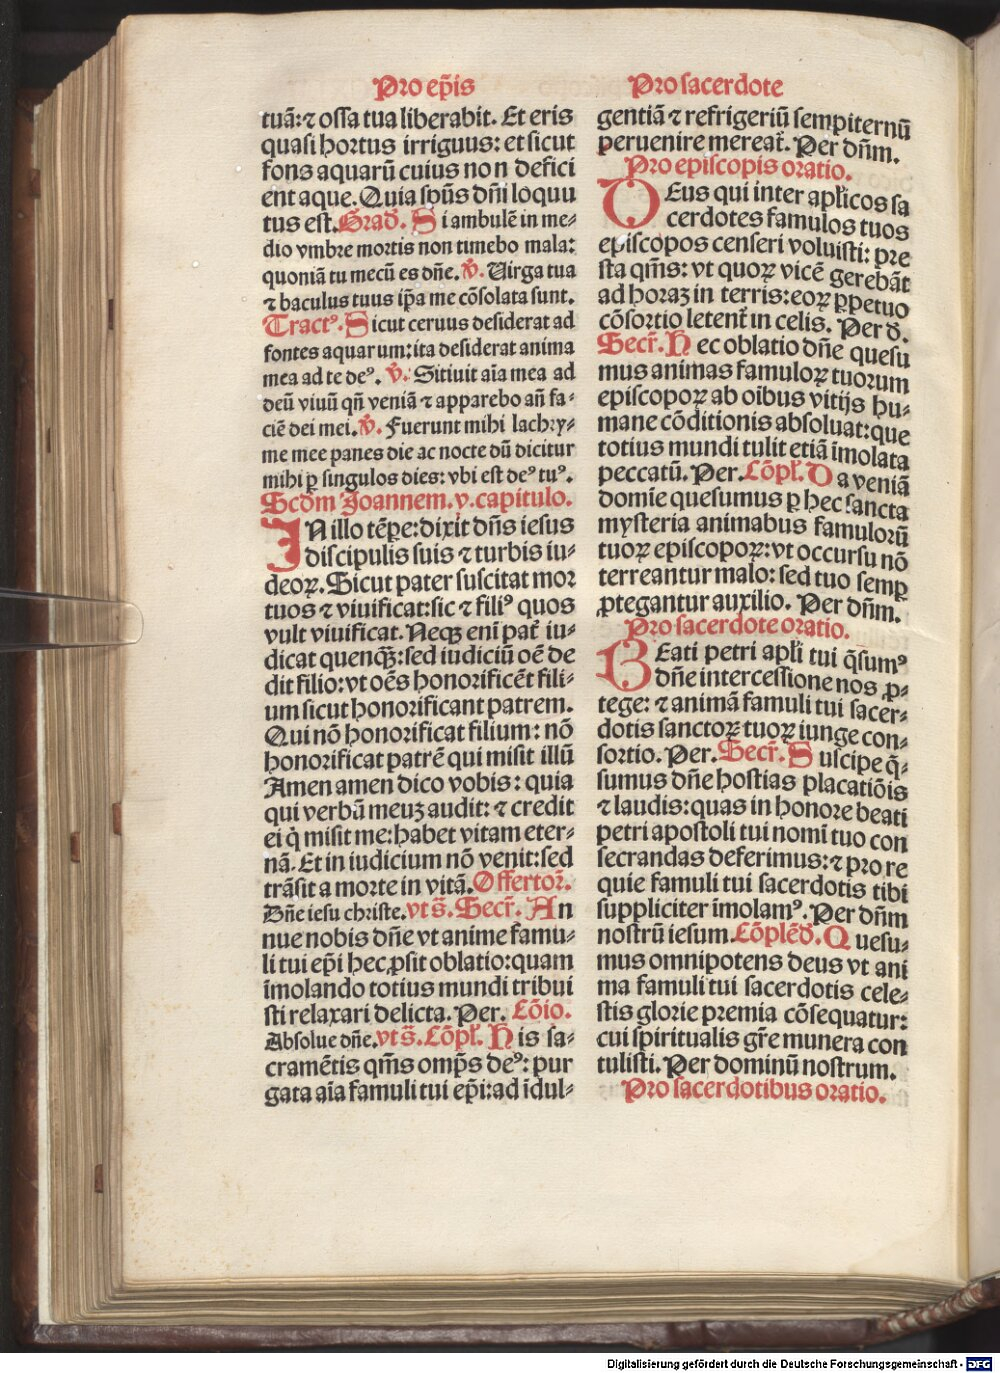 Pro ep̃is
tuã: ⁊ ossa tua liberabit. Et eris
quasi hortus irriguus: et sicut
fons aquarũ cuius non defici
ent aque. Quia sp̃us dñi loquu
tus est. Grad̃. Si ambulẽ in me⸗
dio vmbre mortis non timebo mala:
quoniã tu mecũ es dñe. v̄. Uirga tua
⁊ baculus tuus ip̃a me cõsolata sunt.
Tractꝰ. Sicut ceruus desiderat ad
fontes aquarum: ita desiderat anima
mea ad te deꝰ. v̄. Sitiuit aĩa mea ad
deũ viuũ qñ veniã ⁊ apparebo añ fa⸗
ciẽ dei mei. v̄. Fuerunt mihi lachry⸗
me mee panes die ac nocte dũ dicitur
mihi ꝑ singulos dies: vbi est deꝰ tuꝰ.
Scd̃m Joannem. v. capitulo.
IN illo tẽpe: dixit dñs iesus
discipulis suis ⁊ turbis iu⸗
deoꝝ. Sicut pater suscitat mor
tuos ⁊ viuificat: sic ⁊ filiꝰ quos
vult viuificat. Neqꝫ eni pat̃ iu⸗
dicat quenqꝫ̃: sed iudiciũ oẽ de
dit filio: vt oẽs honorificẽt fili⸗
um sicut honorificant patrem.
Qui nõ honorificat filium: nõ
honorificat patrẽ qui misit illũ
Amen amen dico vobis: quia
qui verbũ meuꝫ audit: ⁊ credit
ei q̇ misit me: habet vitam eter⸗
nã. Et in iudicium nõ venit: sed
trãsit a morte in vitã. Offertor̃.
Dñe iesu christe. vt s̃. Secr̃. An
nue nobis dñe vt anime famu⸗
li tui ep̃i hec ꝓsit oblatio: quam
ĩmolando totius mundi tribui
sti relaxari delicta. Per. Cõio.
Absolue dñe. vt s̃. Cõpl̃. His sa⸗
cramẽtis qm̃s omp̃s deꝰ: pur
gata aĩa famuli tui ep̃i: ad ĩdul⸗
Pro sacerdote
gentiã ⁊ refrigeriũ sempiternũ
peruenire mereat̃. Per dñm.
Pro episcopis oratio.
DEus qui inter apl̃icos sa
cerdotes famulos tuos
episcopos censeri voluisti: pre
sta qm̃s: vt quoꝝ vicẽ gerebãt
ad horaꝫ in terris: eoꝝ ꝑpetuo
cõsortio letent̃ in celis. Per d̃.
Secr̃. Hec oblatio dñe quesu
mus animas famuloꝝ tuorum
episcopoꝝ ab oĩbus vitijs hu⸗
mane cõditionis absoluat: que
totius mundi tulit etiã ĩmolata
peccatũ. Per. Cõpl̃. Da veniã
domĩe quesumus ꝑ hec sancta
mysteria animabus famulorũ
tuoꝝ episcopoꝝ: vt occursu nõ
terreantur malo: sed tuo semꝑ
ꝓtegantur auxilio. Per dñm.
Pro sacerdote oratio.
BEati petri apl̃i tui q̃sumꝰ
dñe intercessione nos ꝓ⸗
tege: ⁊ animã famuli tui sacer⸗
dotis sanctoꝝ tuoꝝ iunge con⸗
sortio. Per. Secr̃. Suscipe q̃⸗
sumus dñe hostias placatiõis
⁊ laudis: quas in honore beati
petri apostoli tui nomĩ tuo con
secrandas deferimus: ⁊ pro re
quie famuli tui sacerdotis tibi
suppliciter ĩmolamꝰ. Per dñm
nostrũ iesum. Cõplẽd̃. Quesu⸗
mus omnipotens deus vt ani
ma famuli tui sacerdotis cele⸗
stis glorie premia cõsequatur:
cui spiritualis gr̃e munera con
tulisti. Per dominũ nostrum.
Pro sacerdotibus oratio.
Digitalisierung gefördert durch die Deutsche Forschungsgemeinschaft - DFG